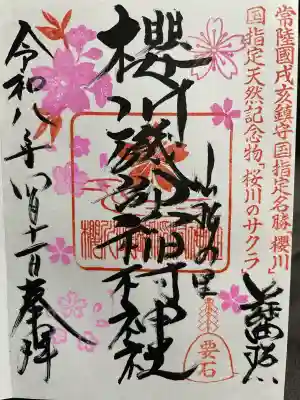 常陸國戌亥鎮守国指定名勝「櫻川」
国指定天然記念物「桜川のサクラ」
要石
櫻川磯部稲村神社
令和八年四月十一日奉拝